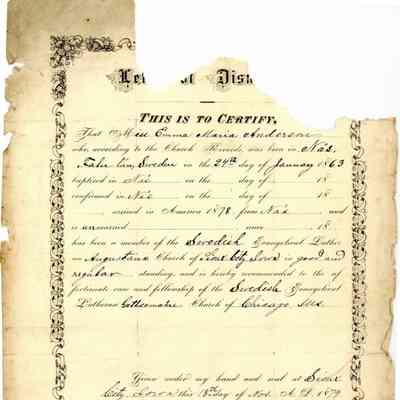 Le of Dis
THIS IS TO CERTIFY,
That Miss Emma Maria Anderson
who, according to the Church Records, was born in Näs,
Falu län, Sweden in the 24th day of January 1863
baptized in Näs on the day of 18
confirmed in Näs on the day of 18
arrived in America 1878 from Näs and
is unmarried since 18
has been a member of the Swedish Evangelical Luther
an Augustana Church of Sioux City Iowa in good and
regular standing, and is hereby recommended to the af
fectionate care and fellowship of the Swedish Evangelical
Lutheran Gethsemane Church of Chicago Ills.
Given under my hand and seal at Sioux
City, Iowa this 18th day of Nov. A. D. 1879